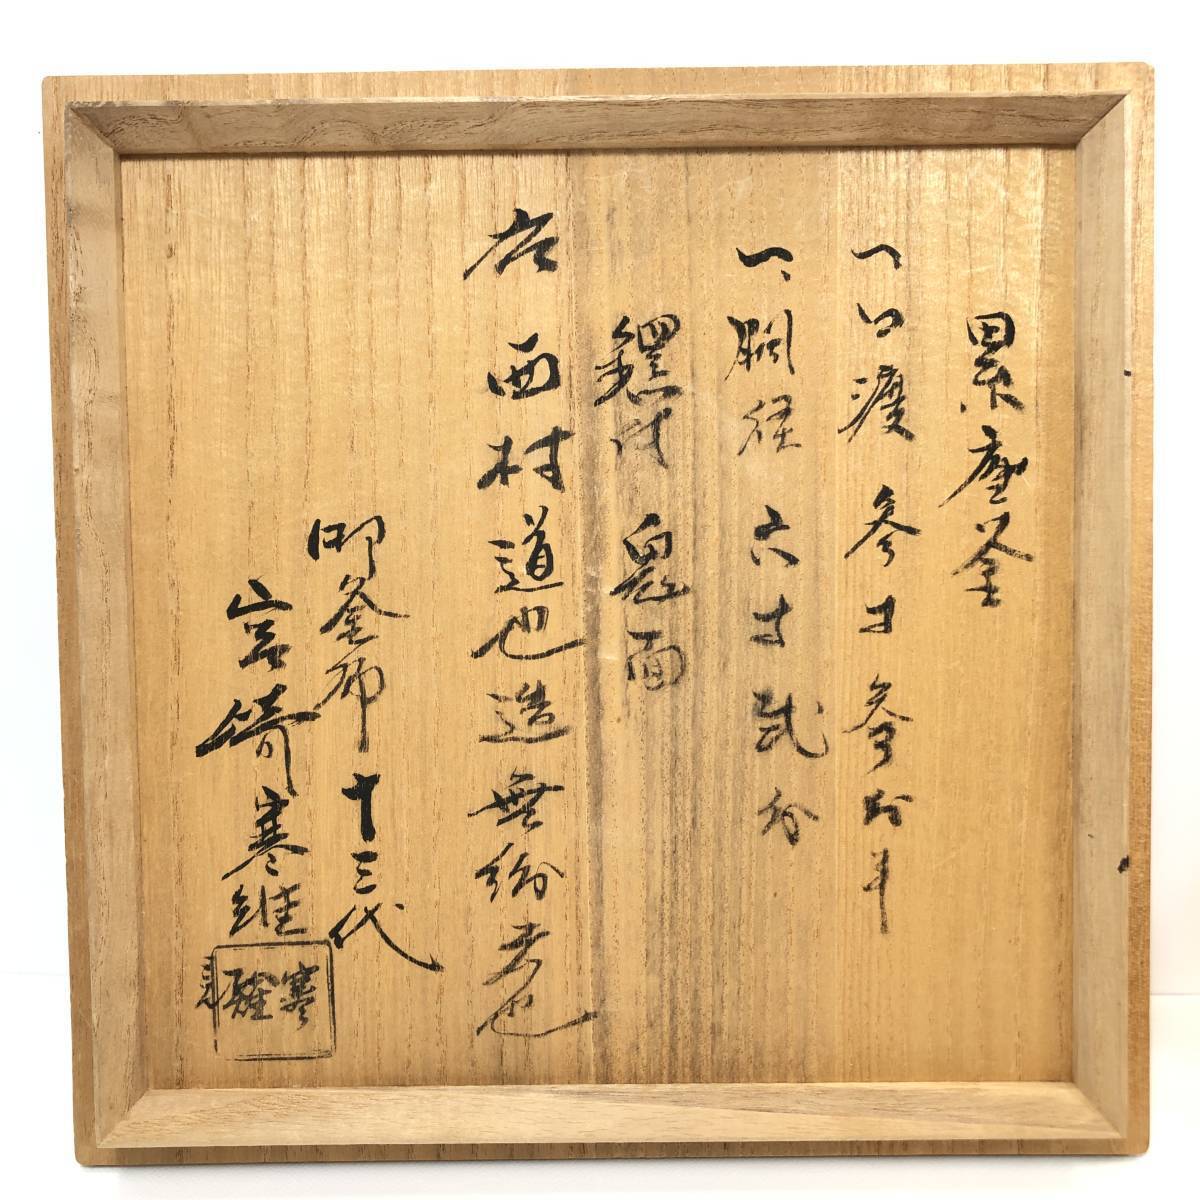 累座釜
一、口渡 参寸参分半
一、胴径 六寸弐分
鐶付 鬼面
右 西村道也造無紛者也
御釜师 十三代
宮崎寒雉
寒雉